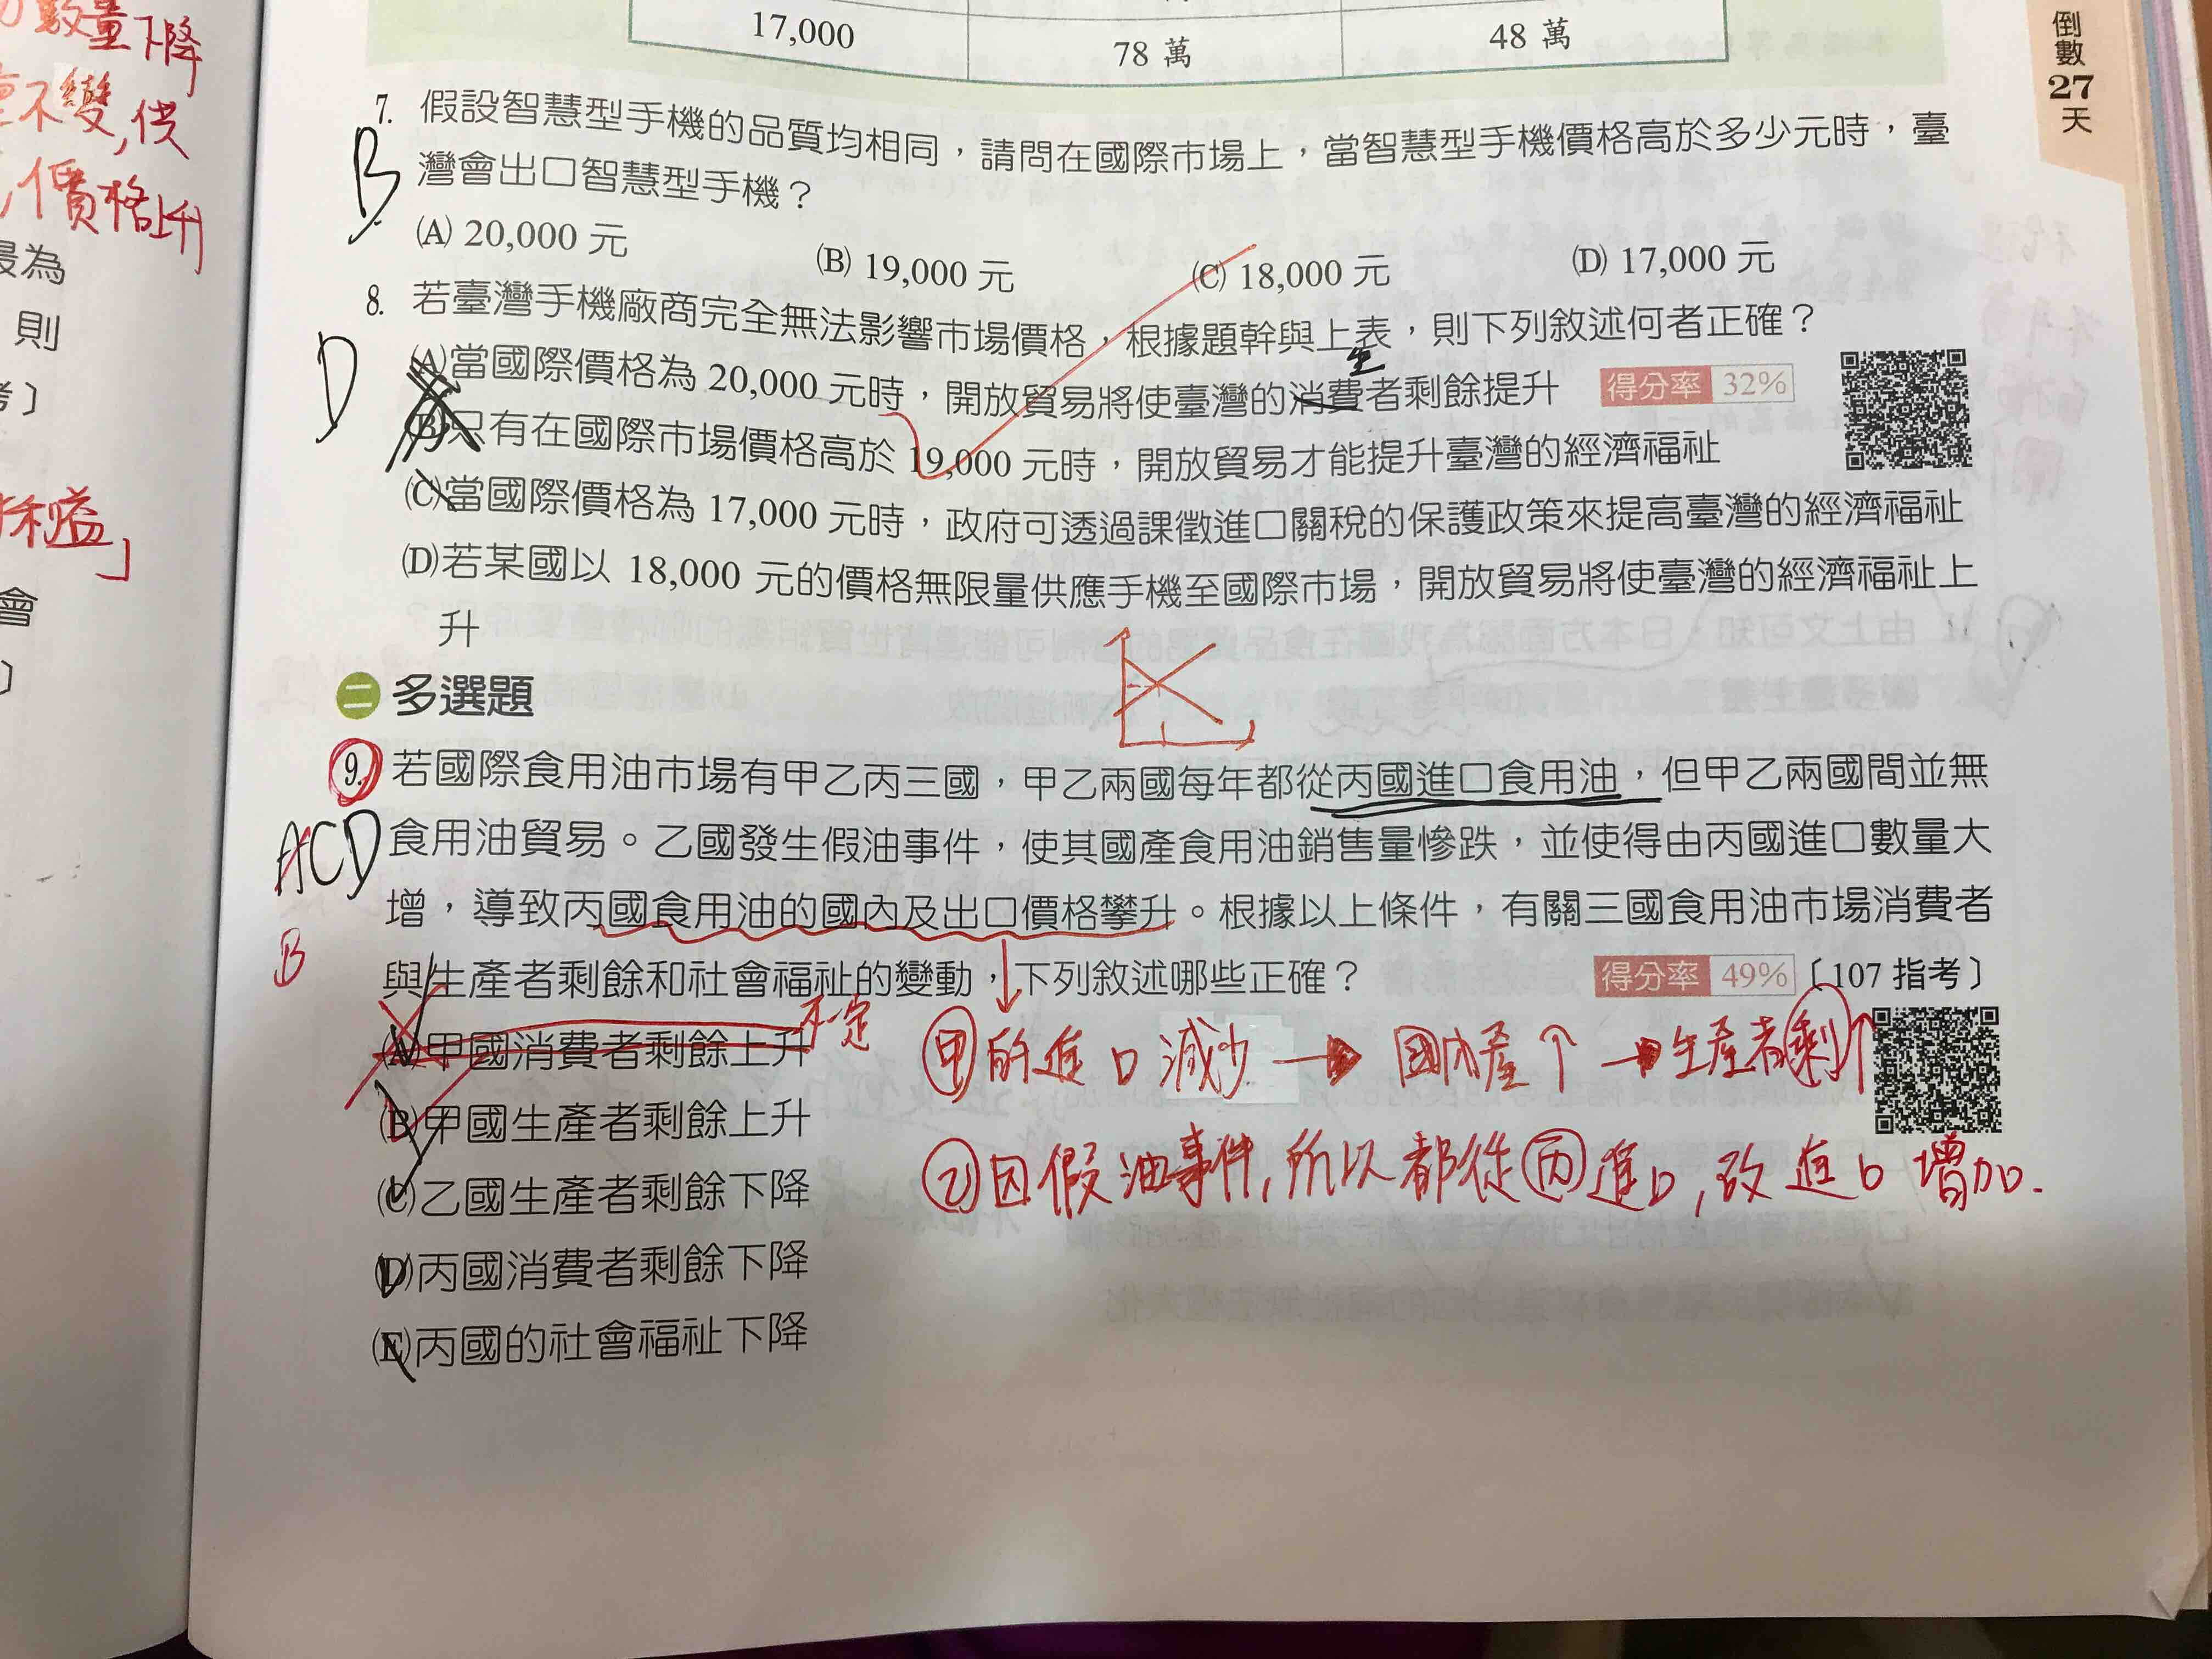 數量下降
不變,供
價格上升
最為
則
考〕
利益」
會
〕
倒數27天
17,000 78 萬 48 萬
7. 假設智慧型手機的品質均相同,請問在國際市場上,當智慧型手機價格高於多少元時,臺
B 灣會出口智慧型手機?
(A) 20,000 元 (B) 19,000 元 (C) 18,000 元 (D) 17,000 元
8. 若臺灣手機廠商完全無法影響市場價格,根據題幹與上表,則下列敘述何者正確?
D (A)當國際價格為 20,000 元時,開放貿易將使臺灣的消費者剩餘提升 得分率 32%
生
(B)只有在國際市場價格高於 19,000 元時,開放貿易才能提升臺灣的經濟福祉
(C)當國際價格為 17,000 元時,政府可透過課徵進口關稅的保護政策來提高臺灣的經濟福祉
(D)若某國以 18,000 元的價格無限量供應手機至國際市場,開放貿易將使臺灣的經濟福祉上
升
二 多選題
9. 若國際食用油市場有甲乙丙三國,甲乙兩國每年都從丙國進口食用油,但甲乙兩國間並無
ACD 食用油貿易。乙國發生假油事件,使其國產食用油銷售量慘跌,並使得由丙國進口數量大
增,導致丙國食用油的國內及出口價格攀升。根據以上條件,有關三國食用油市場消費者
B 與生產者剩餘和社會福祉的變動,下列敘述哪些正確? 得分率 49% 〔107 指考〕
(A)甲國消費者剩餘上升 不一定
甲 所進口 減少 → 國內產↑ → 生產者剩↑
(B)甲國生產者剩餘上升
(C)乙國生產者剩餘下降
乙 因假油事件,所以都從丙進口,故進口增加.
(D)丙國消費者剩餘下降
(E)丙國的社會福祉下降